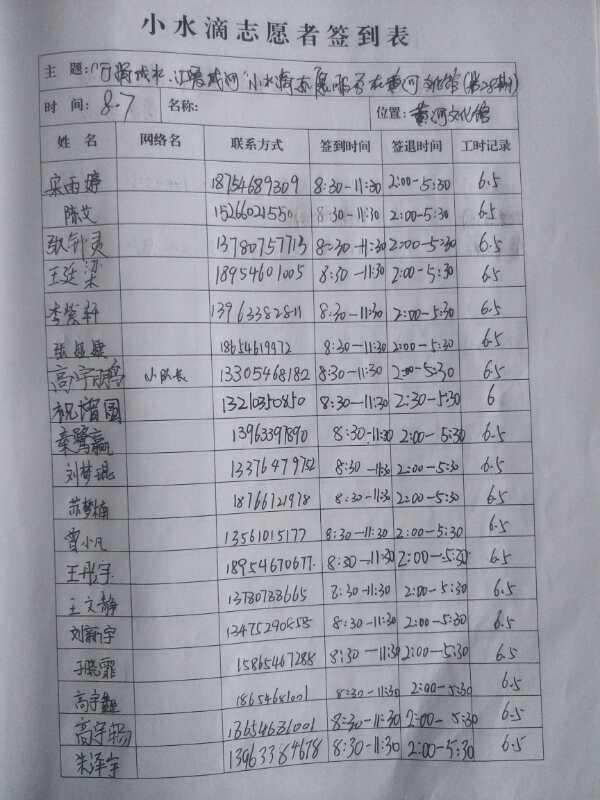 小水滴志愿者签到表
主 题: 小水滴志愿服务在黄河文化馆(第28期)
时 间: 8.7 名称: 位置: 黄河文化馆
姓 名 网络名 联系方式 签到时间 签退时间 工时记录
宋雨婷 18754689309 8:30-11:30 2:00-5:30 6.5
陈艾 15266021550 8:30-11:30 2:00-5:30 6.5
13780757713 8:30-11:30 2:00-5:30 6.5
王廷梁 18954601005 8:30-11:30 2:00-5:30 6.5
李紫轩 13963382811 8:30-11:30 2:00-5:30 6.5
18654619972 8:30-11:30 2:00-5:30 6.5
高宇鸣 小队长 13305468182 8:30-11:30 2:00-5:30 6.5
祝增国 13210350850 8:30-11:30 2:30-5:30 6
秦鹭赢 13963397890 8:30-11:30 2:00-5:30 6.5
刘梦琨 13376479752 8:30-11:30 2:00-5:30 6.5
苏梦楠 18766721978 8:30-11:30 2:00-5:30 6.5
曾小凡 13561015177 8:30-11:30 2:00-5:30 6.5
王彤宇 18954670677 8:30-11:30 2:00-5:30 6.5
王文静 13780788665 8:30-11:30 2:00-5:30 6.5
刘新宇 13475290858 8:30-11:30 2:00-5:30 6.5
于晓霏 15865467288 8:30-11:30 2:00-5:30 6.5
高宇 18654681001 8:30-11:30 2:00-5:30 6.5
高宇畅 18654631001 8:30-11:30 2:00-5:30 6.5
朱泽宇 13963384678 8:30-11:30 2:00-5:30 6.5